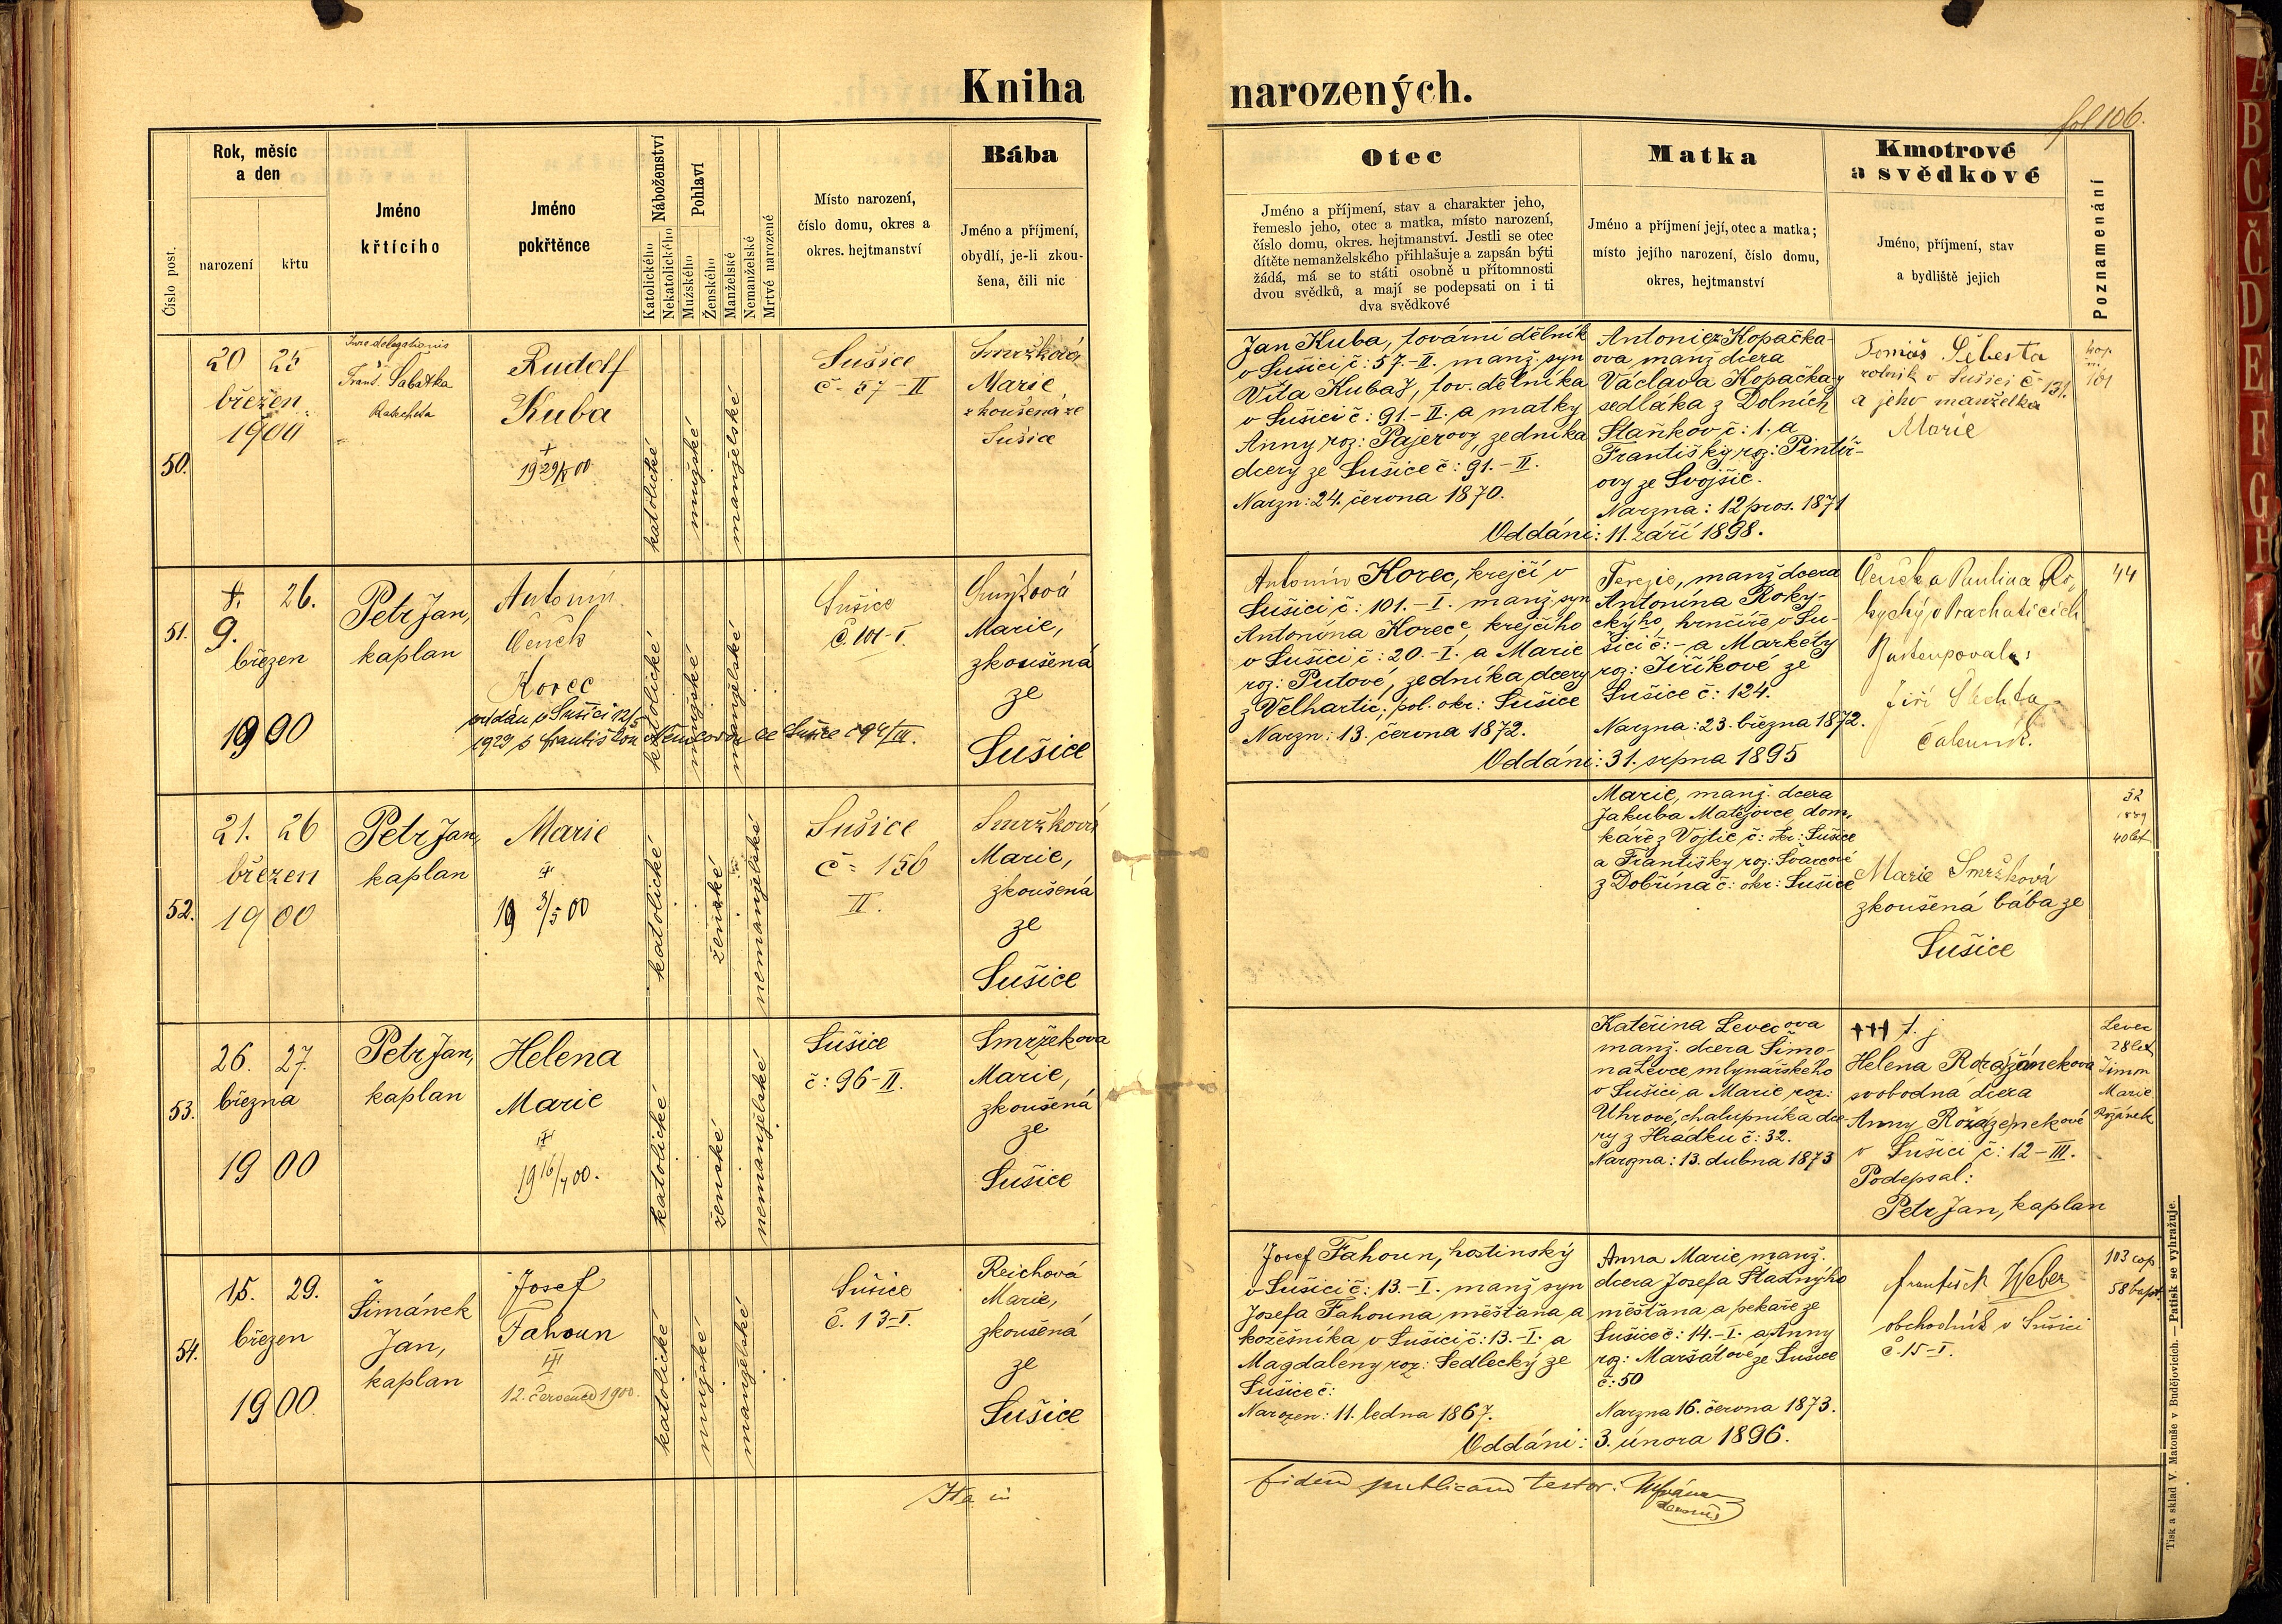 Kniha narozených.
fol 106.
Číslo post.
Rok, měsíc
a den
narození
křtu
Jméno
křtícího
Jméno
pokřtěnce
Náboženství
Katolického
Nekatolického
Pohlaví
Mužského
Ženského
Manželské
Nemanželské
Mrtvé narozené
Místo narození,
číslo domu, okres a
okres. hejtmanství
Bába
Jméno a příjmení,
obydlí, je-li zkou-
šena, čili nic
Otec
Jméno a příjmení, stav a charakter jeho,
řemeslo jeho, otec a matka, místo narození,
číslo domu, okres. hejtmanství. Jestli se otec
dítěte nemanželského přihlašuje a zapsán býti
žádá, má se to státi osobně u přítomnosti
dvou svědků, a mají se podepsati on i ti
dva svědkové
Matka
Jméno a příjmení její, otec a matka;
místo jejího narození, číslo domu,
okres, hejtmanství
Kmotrové
a svědkové
Jméno, příjmení, stav
a bydliště jejich
Poznamenání
50.
20 25
březen
1900
Jure delegationis
Frant. Sabatka
Katecheta
Rudolf
Kuba
+
19 29/5 00
katolické
mužské
manželské
Sušice
č. 57-II
Smržková
Marie
zkoušená ze
Sušice
Jan Kuba, tovární dělník
v Sušici č: 57.-II. manž. syn
Víta Kubaž, tov. dělníka
v Sušici č: 91.-II. a matky
Anny roz: Pajerovy, zedníka
dcery ze Sušice č: 91.-II.
Narzn: 24. června 1870.
Antonie Kopačka-
ova manž dcera
Václava Kopačka
sedláka z Dolních
Staňkov č: 1. a
Františky roz: Pintíř-
ovy ze Svojšic.
Narzna: 12 pros. 1871
Oddáni: 11. září 1898.
Tomáš Šebesta
rolník v Sušici č 131.
a jeho manželka
Marie
51.
8. 26.
9.
březen
1900
Petr Jan,
kaplan
Antonín
Čeněk
Korec
oddán v Sušici 12/
1929 s Františkou Němcovou ze Sušice č 94/III.
katolické
mužské
manželské
Sušice
č. 101-I.
Smržková
Marie,
zkoušená
ze
Sušice
Antonín Korec, krejčí v
Sušici č: 101.-I. manž. syn
Antonína Korec, krejčího
v Sušici č: 20.-I. a Marie
roz: Putové, zedníka dcery
z Velhartic, pol. okr: Sušice
Narzn: 13. června 1872.
Terezie, manž dcera
Antonína Roky-
ckýho, hrnčíře v Su-
šici č: - a Markéty
roz: Jiříkové ze
Sušice č: 124.
Narzna: 23. března 1872.
Oddáni: 31. srpna 1895
Čeněk a Paulina Ro-
kycký v Prachaticích
Zastupoval:
Jiří Šlechta,
čalouník.
44
52.
21. 26
březen
1900
Petr Jan,
kaplan
Marie
19 3/5 00
katolické
ženské
nemanželské
Sušice
č= 156
II.
Smržková
Marie,
zkoušená
ze
Sušice
Marie, manž. dcera
Jakuba Matějovce, dom-
káře z Vojtic č: okr: Sušice
a Františky roz: Švarcové
z Dobřína č: okr: Sušice
Marie Smržková
zkoušená bába ze
Sušice
32
1889
40 let
53.
26. 27.
března
1900
Petr Jan,
kaplan
Helena
Marie
19 16/7 00.
katolické
ženské
nemanželské
Sušice
č: 96-II.
Smržekova
Marie,
zkoušená
ze
Sušice
Kateřina Levecova
manž. dcera Šimo-
na Levce, mlynářského
v Sušici, a Marie roz:
Uhrové, chalupníka dce-
ry z Hrádku č: 32.
Narozna: 13. dubna 1873
+++ t. j.
Helena Rozánekova
svobodná dcera
Anny
v Sušici č: 12-III.
Podepsal:
Petr Jan, kaplan
Levec
28 let
Šimon
Marie
54.
15. 29.
březen
1900.
Šimánek
Jan,
kaplan
Josef
Fahoun
12. července 1900.
katolické
mužské
manželské
Sušice
č. 13-I.
Reichová
Marie,
zkoušená
ze
Sušice
Josef Fahoun, hostinský
v Sušici č: 13.-I. manž syn
Josefa Fahouna, měšťana, a
kožešníka v Sušici č: 13.-I. a
Magdaleny roz: Sedlecký ze
Sušice č:
Narozen: 11. ledna 1867.
Anna Marie, manž.
dcera Josefa Šťastnýho
měšťana a pekaře ze
Sušice č: 14.-I. a Anny
roz: Maršátové ze Sušice
č: 50
Narzna 16. června 1873.
Oddáni: 3. února 1896.
František Weber
obchodník v Sušici
č. 15-I.
103 cop.
58 bapt.
Ita in
fidem publicam testor:
Tisk a sklad V. Matouše v Budějovicích. — Patisk se vyhražuje.